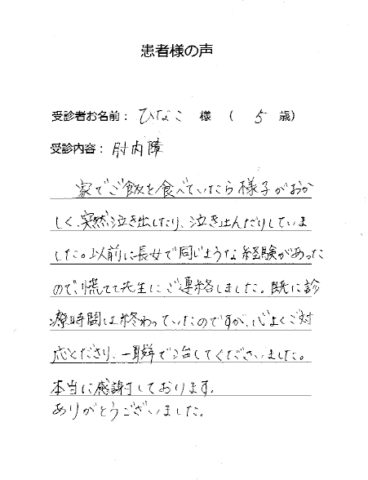 患者様の声
受診者お名前：ひなこ 様 （ 5 歳）
受診内容：肘内障
家でご飯を食べていたら様子がおか
しく、突然泣き出したり、泣き止んだりしていま
した。以前に長女で同じような経験があった
ので、慌てて先生にご連絡しました。既に診
療時間は終わっていたのですが、心よくご対
応くださり、一瞬で治してくださいました。
本当に感謝しております。
ありがとうございました。